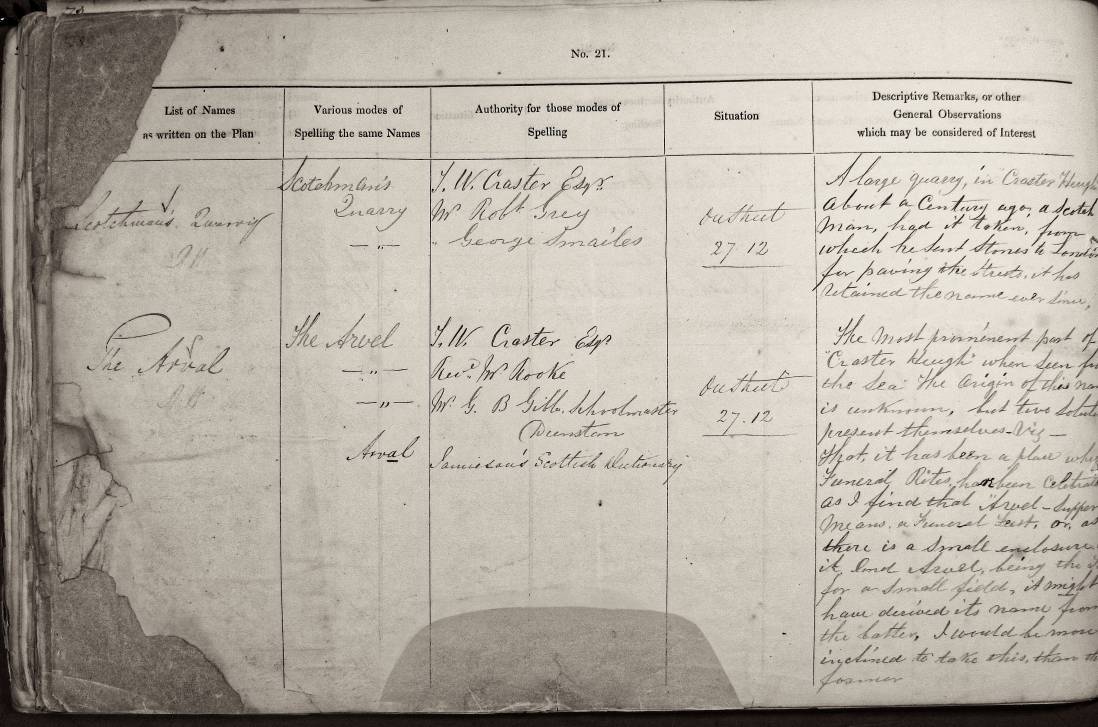 No. 21.
List of Names
as written on the Plan
Various modes of
Spelling the same Names
Authority for those modes of
Spelling
Situation
Descriptive Remarks, or other
General Observations
which may be considered of Interest
Scotchman's Quarry
Scotchman's
Quarry
— „ —
T. W. Craster Esqr.
Mr Robt Grey
" George Smailes
27.12
A large quarry, in Craster Heugh
About a Century ago, a Scotch
Man, had it taken, from
which he sent Stones to London
for paving the Streets, it has
retained the name ever since,
The Arval
The Arvel
— „ —
— „ —
Arval
T. W. Craster Esqr
Revd. Mr Rooke
Mr. G. B Gibb, Schoolmaster
Dunstan
Jamieson's Scottish Dictionary
27.12
The most prominent part of
"Craster Heugh" when seen
the Sea The Origin of this
is unknown, but two
present themselves Viz —
That, it has been a place
Funeral Rites, been
as I find that "Arvel-Supper
Means a Funeral Feast, or, as
there is a small enclosure
it, Arvel, being the
for a small field, it might
have derived its name from
the latter, I would be more
inclined to take this, than
former